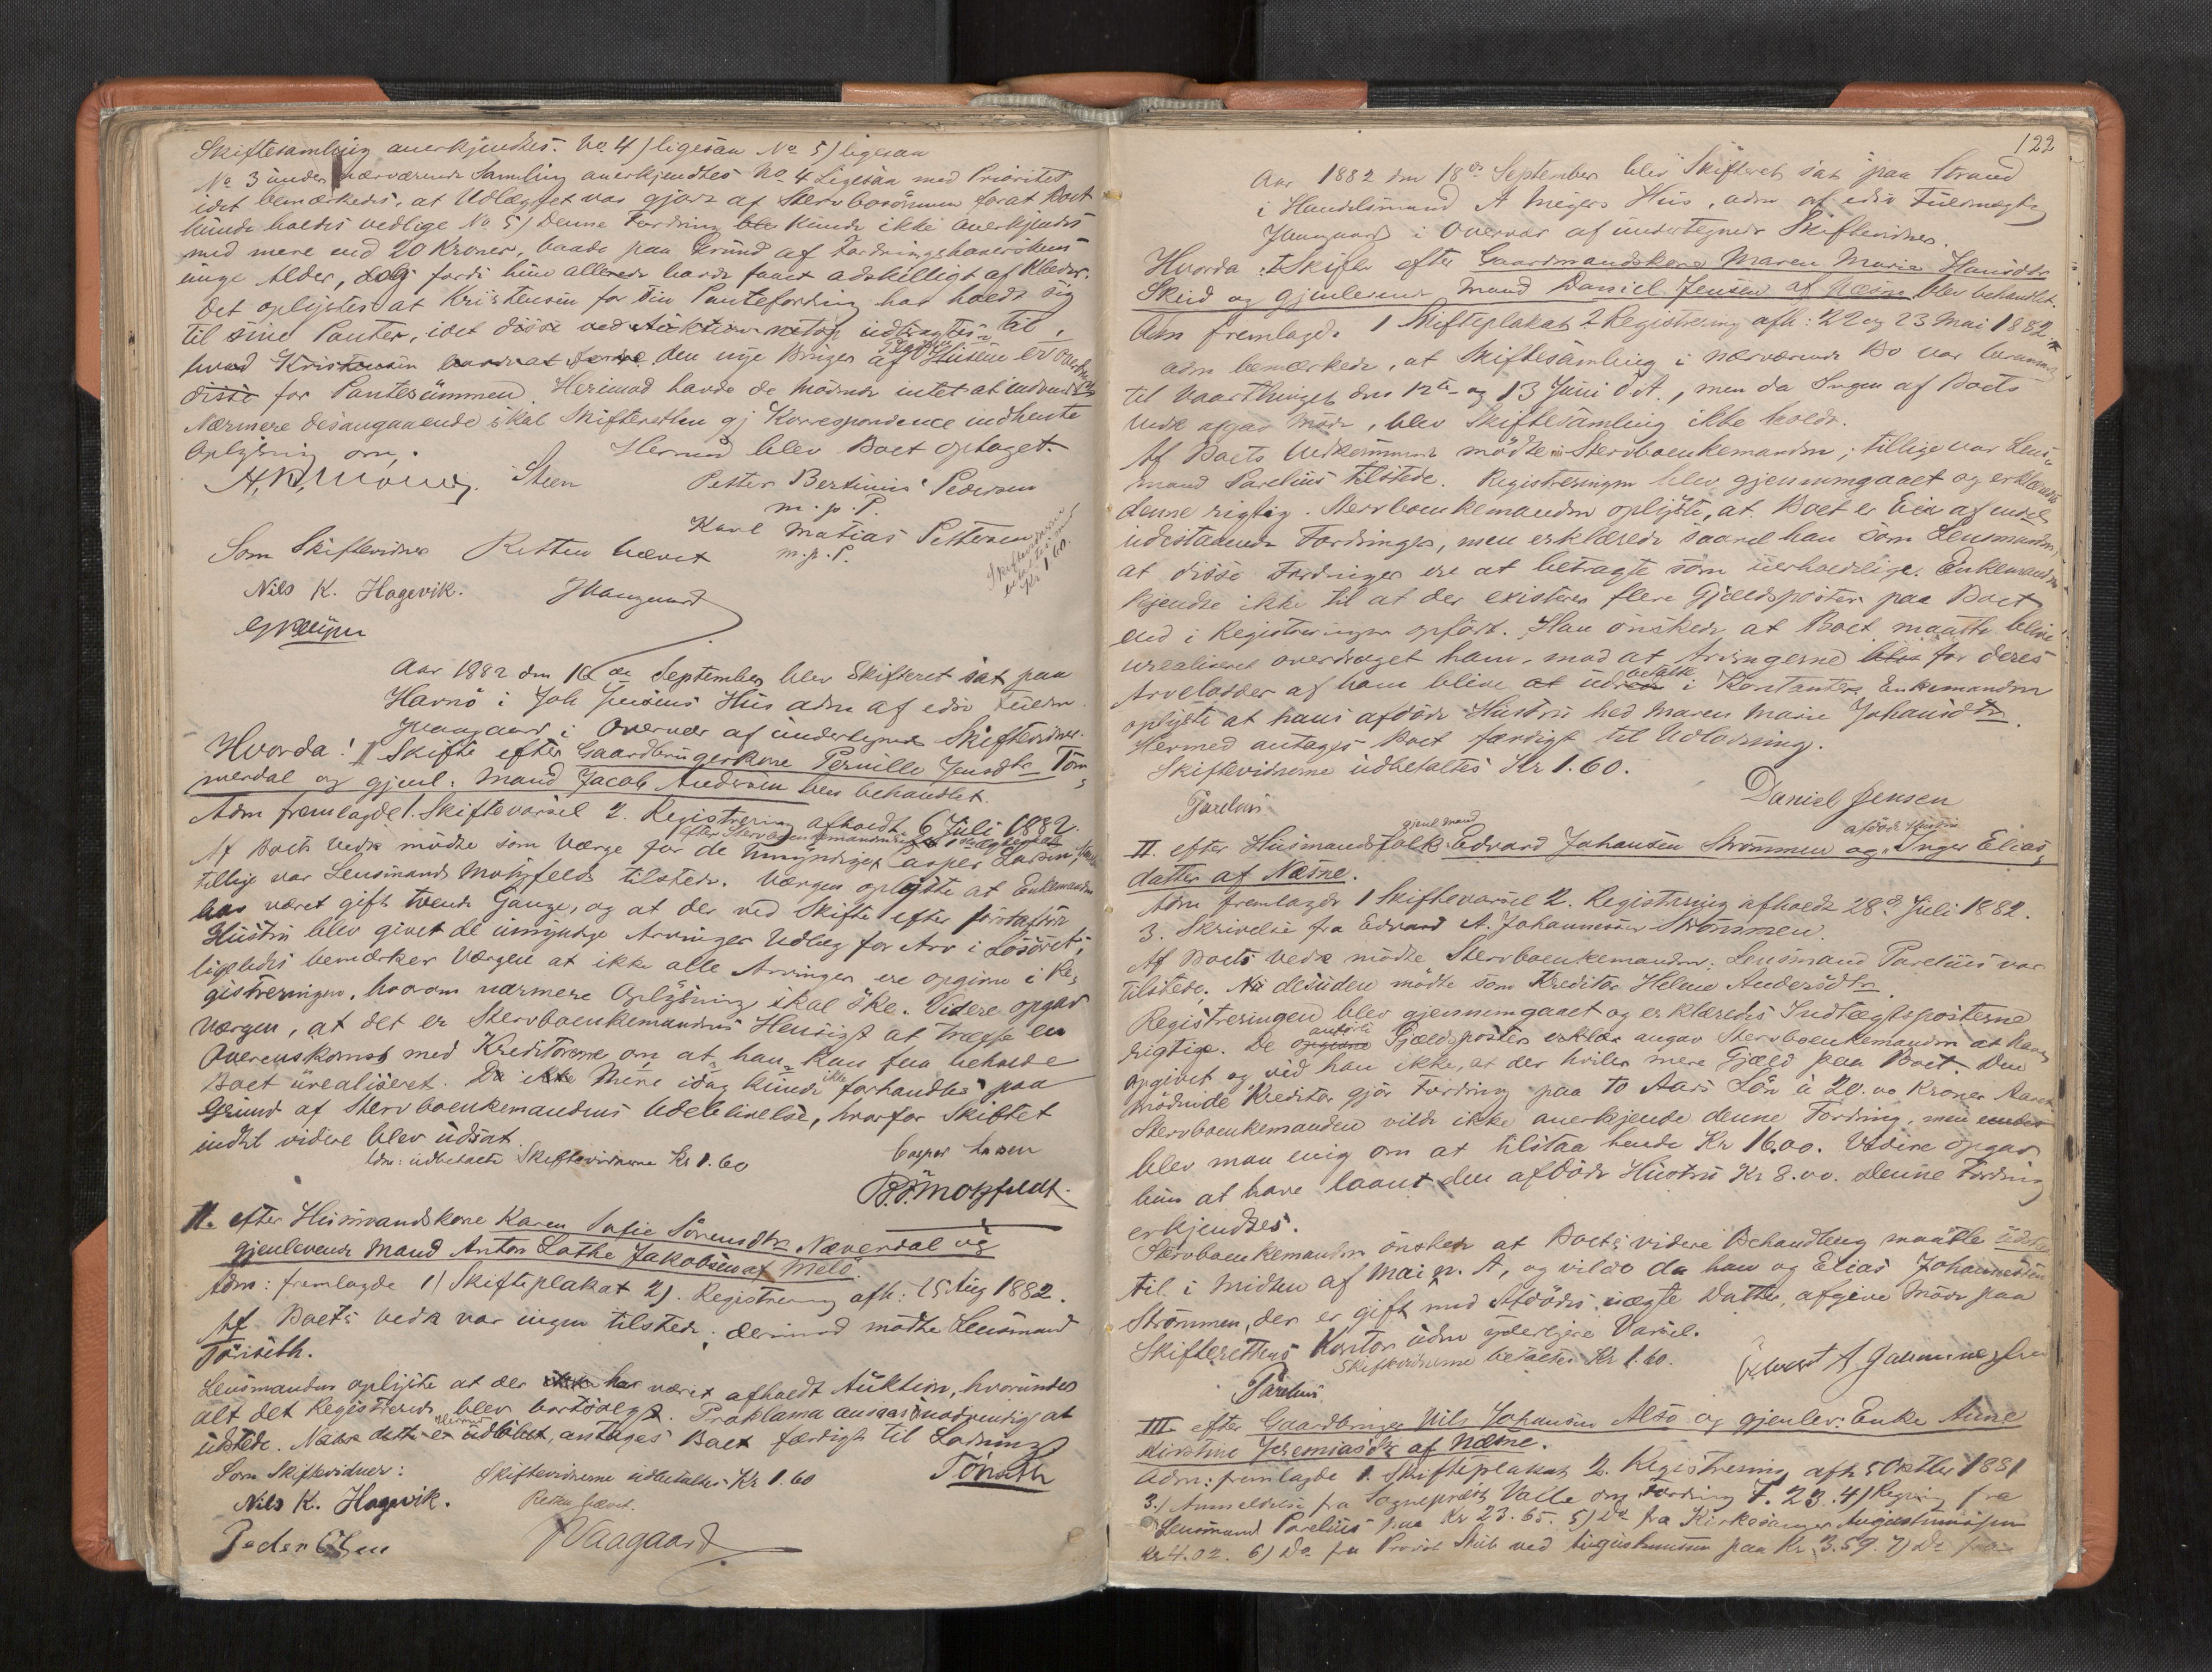 Skiftesamling anerkjendtes. No 4) ligesaa No 5) ligesaa
No 3 under nærværende Samling anerkjendtes No 4 Ligesaa med Prioritet
idet bemærkedes, at Udlægget var gjort af Stervbosönnen forat Boet
kunde holdes vedlige No 5) Denne Fordring ble kunde ikke anerkjendes
med mere end 20 Kroner, baade paa Grund af Fordringshaverskens
unge Alder, og fordi hun allerede havde faaet adskilligt af Klæder.
Det oplystes at Kristensen for sin Pantefordring har holdt sig
til sine Panter, idet disse ved Auktion udbragtes til
hvad Kristensen den nye Bruger af Husene er
disse for Pantesummen. Herimod havde de Mödende intet at indvende
Nærmere desangaaende skal Skifteretten gj Korrespondence indhente
Oplysning om.
Hermed blev Boet optaget.
Steen
Petter Bertinius Pedersen
m. p. P.
Karl Matias Pettersen
m. p. P.
Skiftevidnerne
betaltes med
Kr 1.60.
Som Skiftevidner Retten hævet
Nils K. Hagevik. JVaagaard
Aar 1882 den 16de September blev Skifteret sat paa
Havnö i Joh Jensens Hus adm af edsv Fuldm
JVaagaard i Overvær af undertegnede Skiftevidner.
Hvorda! I Skifte efter Gaardbrugerkone Pernille Jensdtr Tom
merdal og gjenl. Mand Jacob Andersen blev behandlet.
Adm fremlagde 1. Skiftevarsel 2. Registrering afholdt 6 Juli 1882.
Af Boets Vedk mödte som Værge for de Umyndige Casper Larsen,
tillige var Lensmand Motzfeldt tilstede. Værgen oplyste at Enkemanden
har været gift tvende Gange, og at der ved Skifte efter förstafdöde
Hustru blev givet de umyndige Arvinger Udlæg for Arv i Lösöret;
ligeledes bemærker Værgen at ikke alle Arvinger ere opgivne i Re-
gistreringen, hvorom nærmere Oplysning skal ske. Videre opgav
Værgen, at det er Stervboenkemandens Hensigt at træffe en
Overenskomst med Kreditorene om at han kan faa beholde
Boet urealiseret. Da ikke Mere idag kunde ikke forhandles paa
Grund af Stervboenkemandens Udeblivelse, hvorfor Skiftet
indtil videre blev udsat.
Adm: udbetalte Skiftevidnerne Kr 1.60
Casper Larsen
Motzfeldt.
II. efter Husmandskone Karen Sofie Sörensdtr Næverdal og
gjenlevende Mand Anton Lothe Jakobsen af Melö.
Adm: fremlagde 1) Skifteplakat 2). Registrering afh: 15 Aug 1882.
Af Boets Vedk var ingen tilstede. derimod mödte Lensmand
Tönseth.
Lensmanden oplyste at der har været afholdt Auktion, hvorunder
alt det Registrerede blev bortsolgt. Proklama ansaaes unödvendigt at
udstede. Naar dette er udlöbet, antages Boet færdigt til Lodning
Som Skiftevidner: Skiftevidnerne udbetaltes Kr 1.60 Tönseth
Nils K. Hagevik. Retten hævet.
Peder Olsen JVaagaard
122
Aar 1882 den 18de September blev Skifteret sat paa Strand
i Handelsmand A Meyers Hus, adm af edsv Fuldmægtig
JVaagaard i Overvær af undertegnede Skiftevidner.
Hvorda: I Skifte efter Gaardmandskone Maren Marie Hansdtr
Skeid og gjenlevende Mand Daniel Jensen af Næsne blev behandlet.
Adm fremlagde 1 Skifteplakat 2 Registrering afh: 22 og 23 Mai 1882.
Adm bemærkede, at Skiftesamling i nærværende Bo var berammet
til Vaarthinget den 12te og 13 Juni d. A., men da Ingen af Boets
Vedk afgav Möde, blev Skiftesamling ikke holdt.
Af Boets Vedkommende mödte Stervboenkemanden; tillige var Lens-
mand Parelius tilstede. Registreringen blev gjennemgaaet og erklæredes
denne rigtig. Stervboenkemanden oplyste, at Boet er Eier af endel
udestaaende Fordringer, men erklærede saavel han som Lensmanden,
at disse Fordringer ere at betragte som uerholdelige. Enkemanden
kjendte ikke til at der existerer flere Gjældsposter paa Boet
end i Registreringen opfört. Han önskede at Boet maatte blive
urealiseret overdraget ham, mod at Arvingerne for deres
Arvelodder af ham blive betalte i Kontanter. Enkemanden
oplyste at hans afdöde Hustru hed Maren Marie Johansdtr.
Hermed antages Boet færdigt til Udlodning.
Skiftevidnerne udbetaltes Kr 1.60.
Parelius Daniel Jensen
II. efter Husmandsfolk gjenl Mand Edvard Johansen Strömmen og afdöde Hustru Inger Elias-
datter af Næsne.
Adm fremlagde 1 Skiftevarsel 2. Registrering afholdt 28de Juli 1882.
3. Skrivelse fra Edvard A. Johannessen Strömmen.
Af Boets Vedk mödte Stervboenkemanden: Lensmand Parelius var
tilstede. desuden mödte som Kreditor Helene Andersdtr.
Registreringen blev gjennemgaaet og erklæredes Indtægtsposterne
rigtige. De anförte Gjældsposter angav Stervboenkemanden at have
opgivet og ved han ikke, at der hviler mere Gjæld paa Boet. Den
mödende Kreditor gjör Fordring paa to Aars Lön à 20.00 Kroner Aaret.
Stervboenkemanden vilde ikke anerkjende denne Fordring, men
blev man enig om at tilstaa hende Kr 16.00. Videre opgav
hun at have laant den afdöde Hustru Kr 8.00. denne Fordring
erkjendtes.
Stervboenkemanden önsker at Boets videre Behandling maatte udsættes
til i Midten af Mai n. A, og vilde da han og Elias Johannessen
Strömmen, der er gift med Afdödes uægte Datter, afgive Möde paa
Skifterettens Kontor uden yderligere Varsel.
Skiftevidnerne betaltes Kr 1.60.
Parelius
III efter Gaardbruger Nils Johansen Alsö og gjenlev: Enke Anne
Kirstine Jeremiasdtr af Næsne.
Adm: fremlagde 1. Skifteplakat 2. Registrering afh 5 Oktbr 1881
3.) Anmeldelse fra Sognepræst Valle om Fordring 7.23. 4) Regning fra
Lensmand Parelius paa Kr 23.65. 5) Do fra Kirkesanger Augustinussen
Kr 4.02. 6) Do fra Provst ved Augustinussen paa Kr. 3.59. 7) Do fra